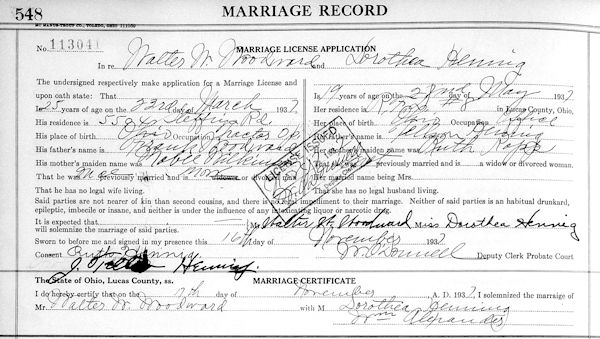 548 MARRIAGE RECORD
MC MANUS-TROUP CO., TOLEDO, OHIO
No. 113041 MARRIAGE LICENSE APPLICATION
In re Walter W. Woodward and Dorothea Hennig
The undersigned respectively make application for a Marriage License and
upon oath state: That
Is 25 years of age on the 23rd day of March 1937 Is 19 years of age on the 22nd day of May 1937
His residence is Her residence is in Lucas County, Ohio,
His place of birth Ohio Occupation Her place of birth Ohio Occupation Office
His father's name is Frank Woodward Her father's name is Hennig
His mother's maiden name was Mabel Her mother's maiden name was Ruth
That he was previously married That she was previously married is a widow or divorced woman.
Her married name being Mrs.
That he has no legal wife living. That she has no legal husband living.
Said parties are not nearer of kin than second cousins, and there is no legal impediment to their marriage. Neither of said parties is an habitual drunkard,
epileptic, imbecile or insane, and neither is under the influence of any intoxicating liquor or narcotic drug.
It is expected that
will solemnize the marriage of said parties. Walter W. Woodward Miss Dorothea Hennig
Sworn to before and signed in my presence this 16th November 1937
Consent Ruth Hennig Deputy Clerk Probate Court
Hennig.
The State of Ohio, Lucas County, ss. MARRIAGE CERTIFICATE
I do hereby certify that on the 17th day of November A. D. 1937 I solemnized the marriage of
Mr. Walter W. Woodward with M Dorothea Hennig
Wm Alexander
LICENSE ISSUED